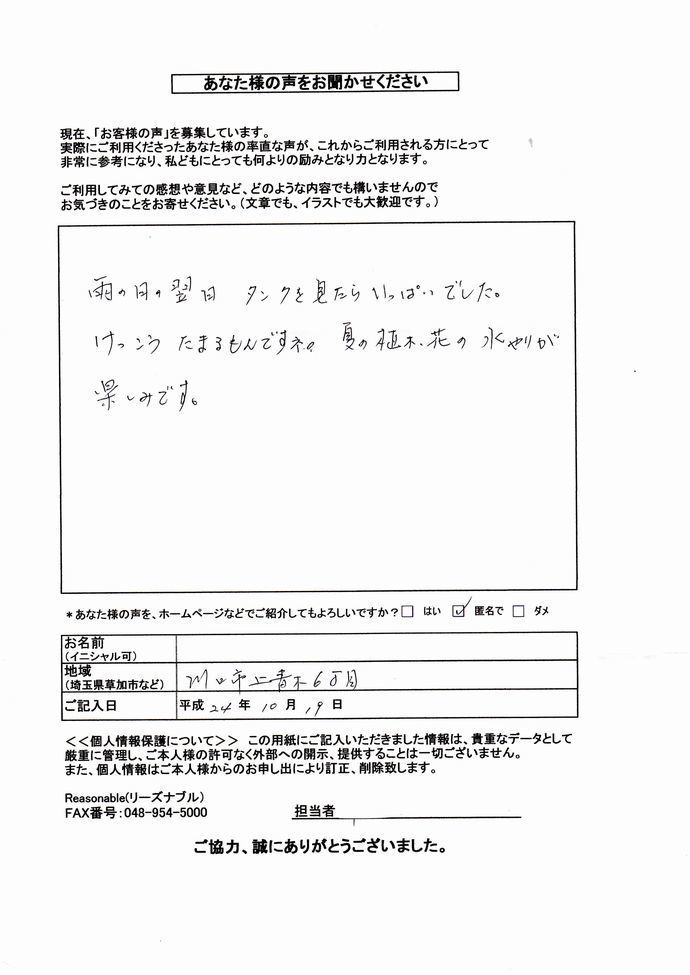 あなた様の声をお聞かせください
現在、「お客様の声」を募集しています。
実際にご利用くださったあなた様の率直な声が、これからご利用される方にとって
非常に参考になり、私どもにとっても何よりの励みとなり力となります。
ご利用してみての感想や意見など、どのような内容でも構いませんので
お気づきのことをお寄せください。(文章でも、イラストでも大歓迎です。)
雨の日の翌日 タンクを見たらいっぱいでした。
けっこう たまるもんですネ。 夏の植木、花の 水やりが
楽しみです。
*あなた様の声を、ホームページなどでご紹介してもよろしいですか?□ はい ☑ 匿名で □ ダメ
お名前
(イニシャル可)
地域
(埼玉県草加市など) 川口市上青木6丁目
ご記入日 平成 24 年 10 月 19 日
<<個人情報保護について>> この用紙にご記入いただきました情報は、貴重なデータとして
厳重に管理し、ご本人様の許可なく外部への開示、提供することは一切ございません。
また、個人情報はご本人様からのお申し出により訂正、削除致します。
Reasonable(リーズナブル)
FAX番号:048-954-5000 担当者
ご協力、誠にありがとうございました。